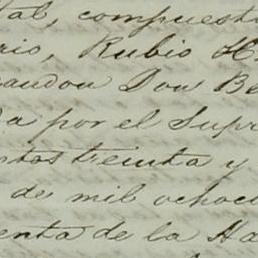 tal, compuesto
rio, Rubio
Don Be
a por el Supr
ntos treinta y
de mil ochoc
enta de la Ha